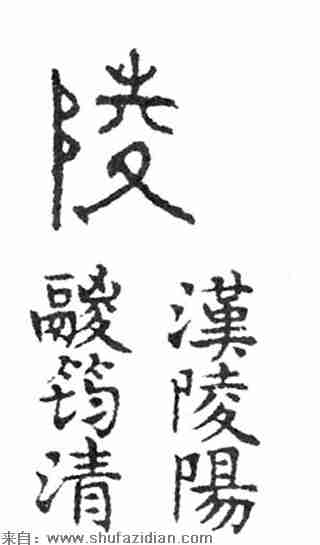 陵
漢陵陽
鬷筠清
来自：www.shufazidian.com